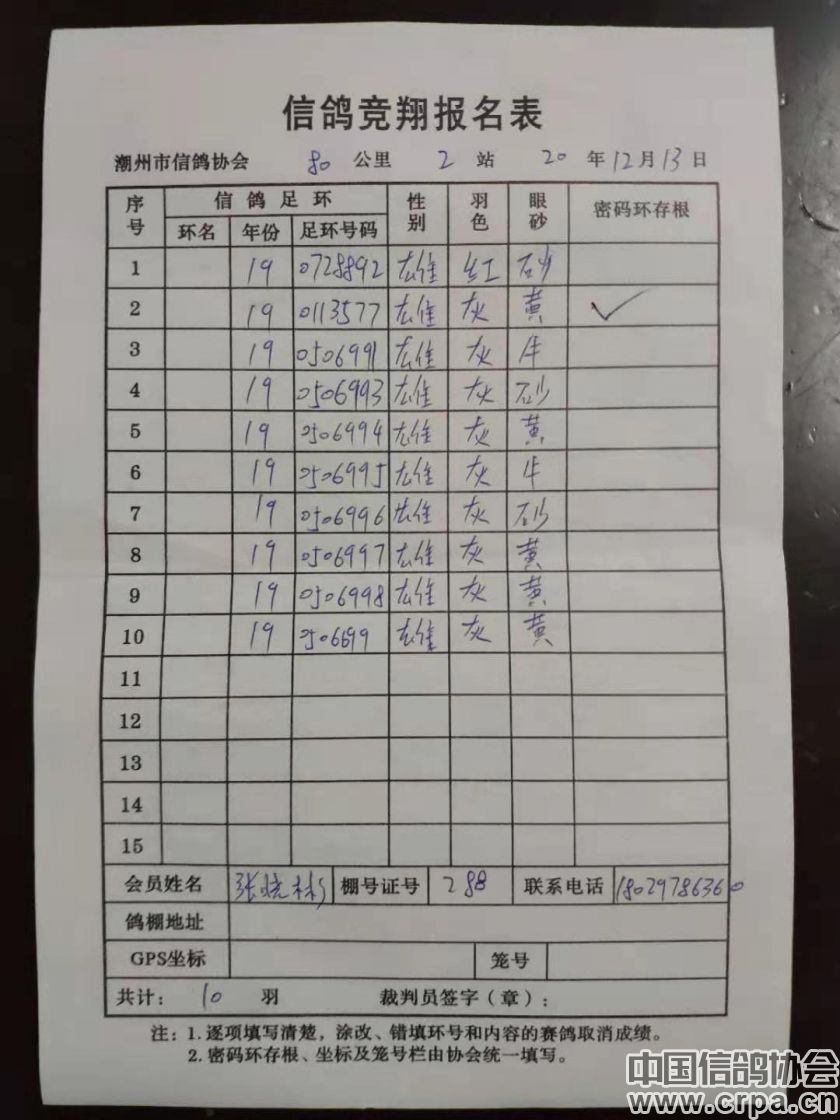 信鸽竞翔报名表
潮州市信鸽协会 80 公里 2 站 20 年 12 月 13 日
序号 信鸽足环 性别 羽色 眼砂 密码环存根
环名 年份 足环号码
1 19 0728892 雄 红 砂
2 19 0113577 雄 灰 黄 ✓
3 19 0506991 雄 灰 牛
4 19 0506993 雄 灰 砂
5 19 0506994 雄 灰 黄
6 19 0506995 雄 灰 牛
7 19 0506996 雄 灰 砂
8 19 0506997 雄 灰 黄
9 19 0506998 雄 灰 黄
10 19 雄 灰 黄
11
12
13
14
15
会员姓名 张 彬 棚号证号 288 联系电话 18029786360
鸽棚地址
GPS坐标 笼号
共计: 10 羽 裁判员签字(章):
注:1.逐项填写清楚,涂改、错填环号和内容的赛鸽取消成绩。
2.密码环存根、坐标及笼号栏由协会统一填写。
中国信鸽协会
www.crpa.cn